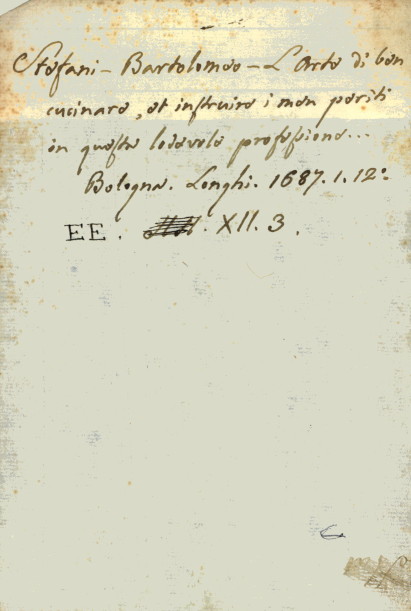 Stefani - Bartolomeo - L'Arte di ben
cucinare, et instruire i men periti
in questa lodevole professione...
Bologna. Longhi. 1687. 1. 12º
EE. XII. 3.